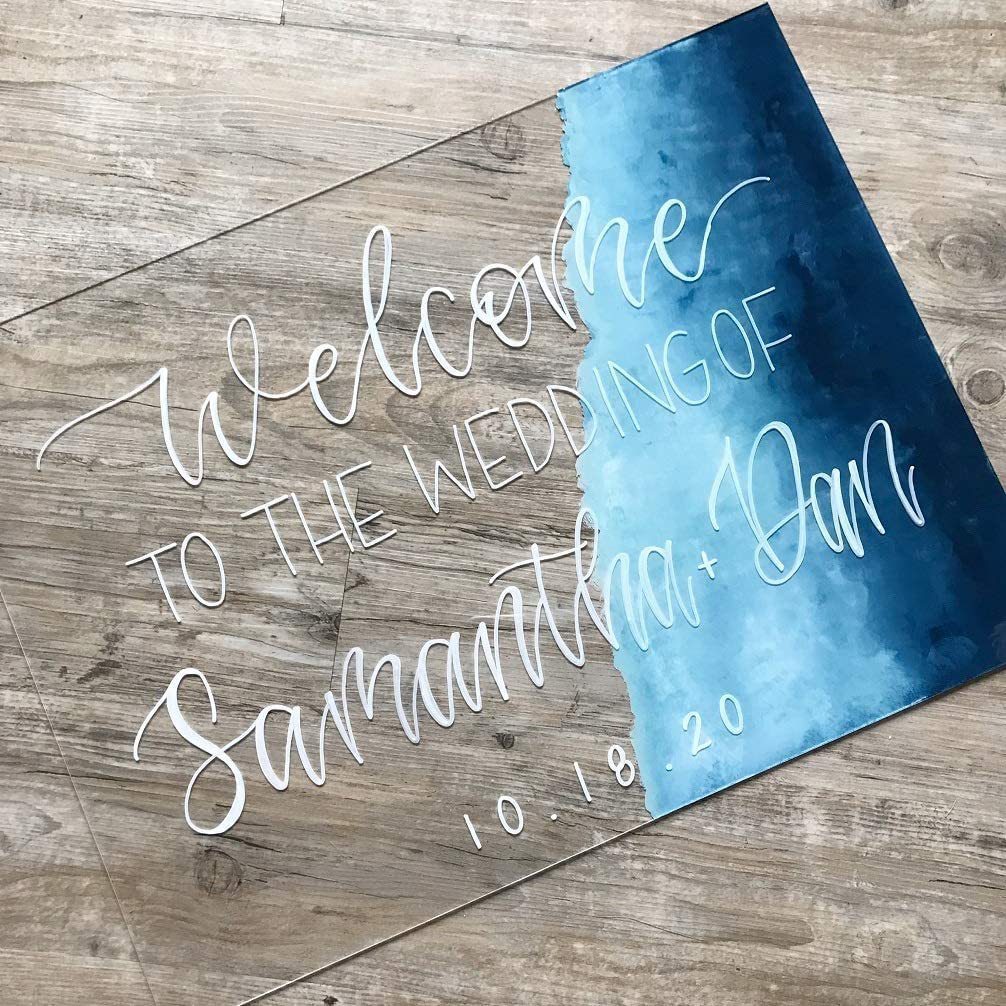 Welcome
TO THE WEDDING OF
Samantha + Dan
10.18.20